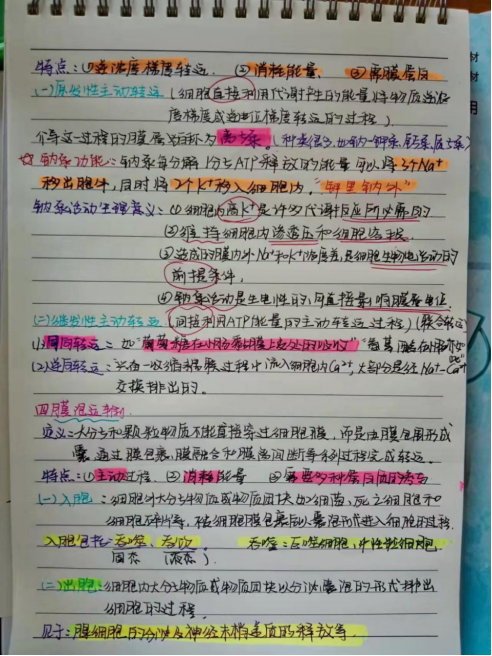 特点：①逆浓度梯度转运 ②消耗能量 ③需膜蛋白
(一)原发性主动转运（细胞直接利用代谢产生的能量将物质逆浓
度梯度或逆电位梯度转运的过程）
介导这一过程的膜蛋白称为离子泵。（种类很多，如钠-钾泵、
☆钠泵功能：钠泵每分解1分子ATP释放的能量可以将3个Na⁺
移出胞外，同时将2个K⁺移入细胞内，"钾里钠外"
钠泵活动生理意义：①细胞内高K⁺是许多代谢反应所必需的
②维持细胞内渗透压和细胞容积
③造成的膜内外Na⁺和K⁺浓度差，是细胞生物电活动的
前提条件，
④钠泵活动是生电性的，可直接影响膜电位
(二)继发性主动转运（间接利用ATP能量的主动转运过程）（联合转运）
(1)同向转运：如"葡萄糖在小肠黏膜上皮处的吸收"
(2)逆向转运：心肌在一次缩和舒张过程中流入细胞内Ca²⁺，大部分是经Na⁺-Ca²⁺
交换排出的。
四膜泡运输
定义：大分子和颗粒物质不能直接穿过细胞膜，而是由膜包围形成
囊泡，通过膜包裹、膜融合和膜离断等系列过程完成转运。
特点：①主动过程 ②消耗能量 ③需要多种蛋白质的参与
(一)入胞：细胞外大分子物质或物质团块如细菌、死亡细胞和
细胞碎片等，被细胞膜包裹后以囊泡形式进入细胞的过程.
入胞包括：吞噬、吞饮 吞噬：巨噬细胞，中性粒细胞.
固态（液态）.
(二)出胞：细胞内大分子物质或物质团块以分泌囊泡的形式排出
细胞的过程。
见于：腺细胞的分泌及神经末梢递质的释放等